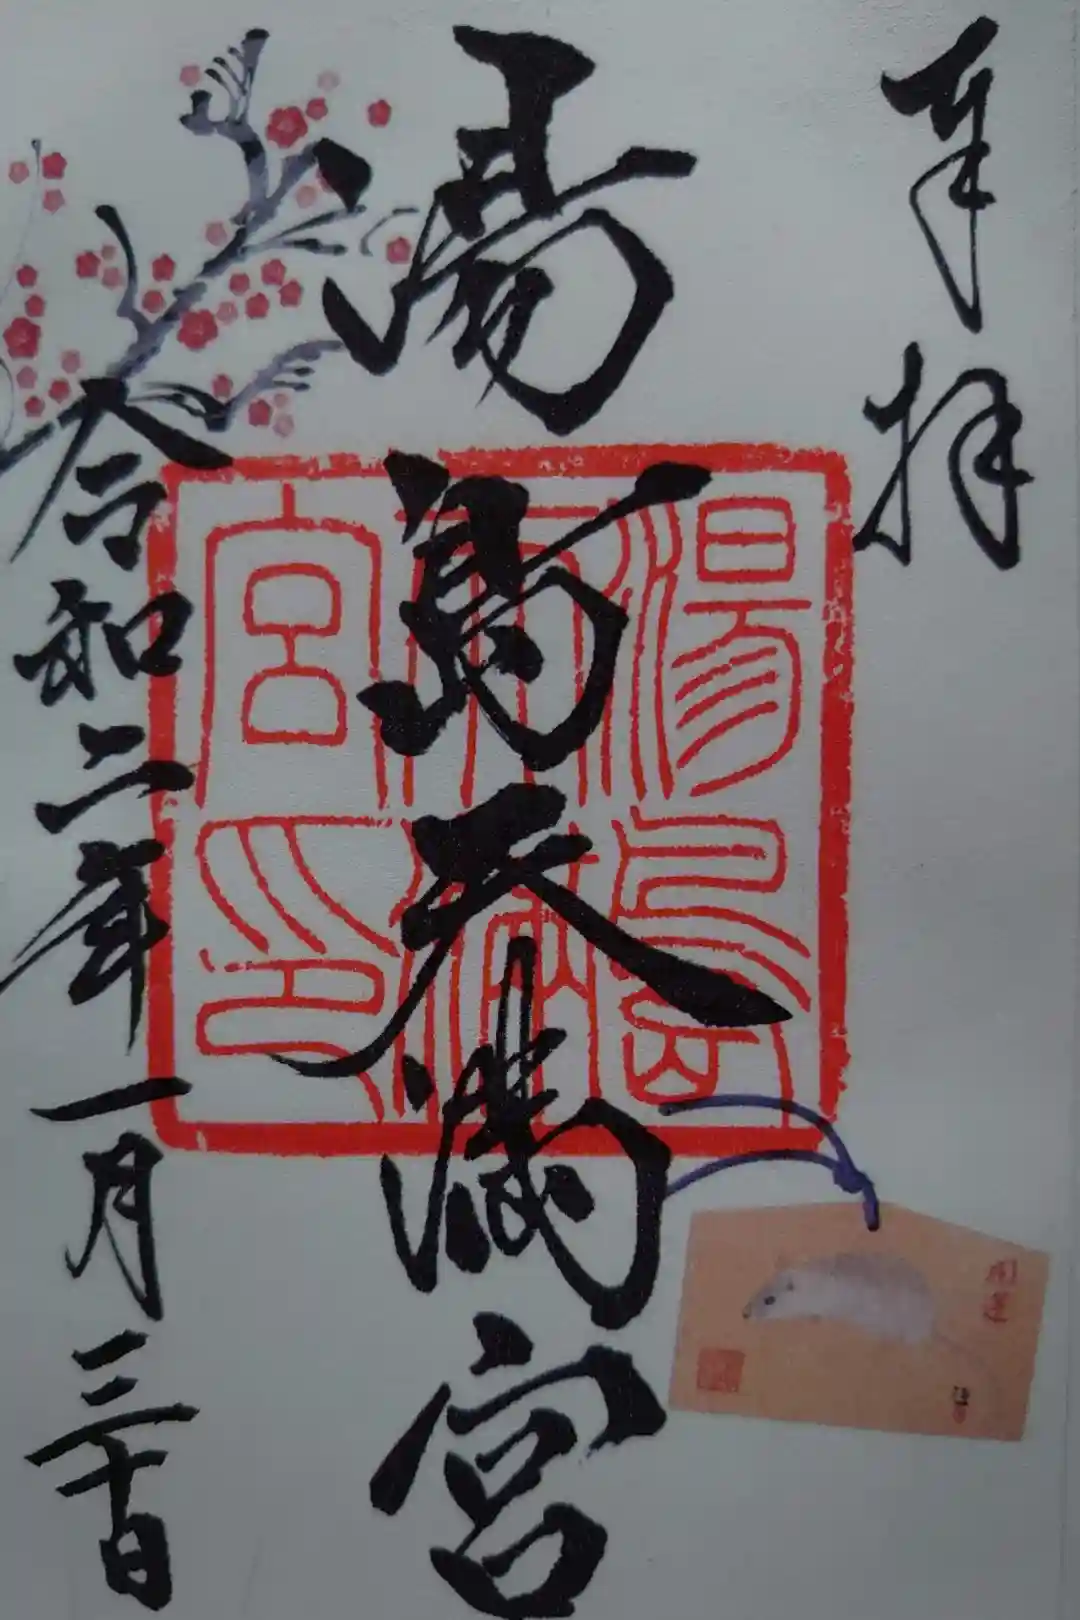 奉拝
湯島天満宮
湯島
天満
宮印
令和二年一月三十日
開運